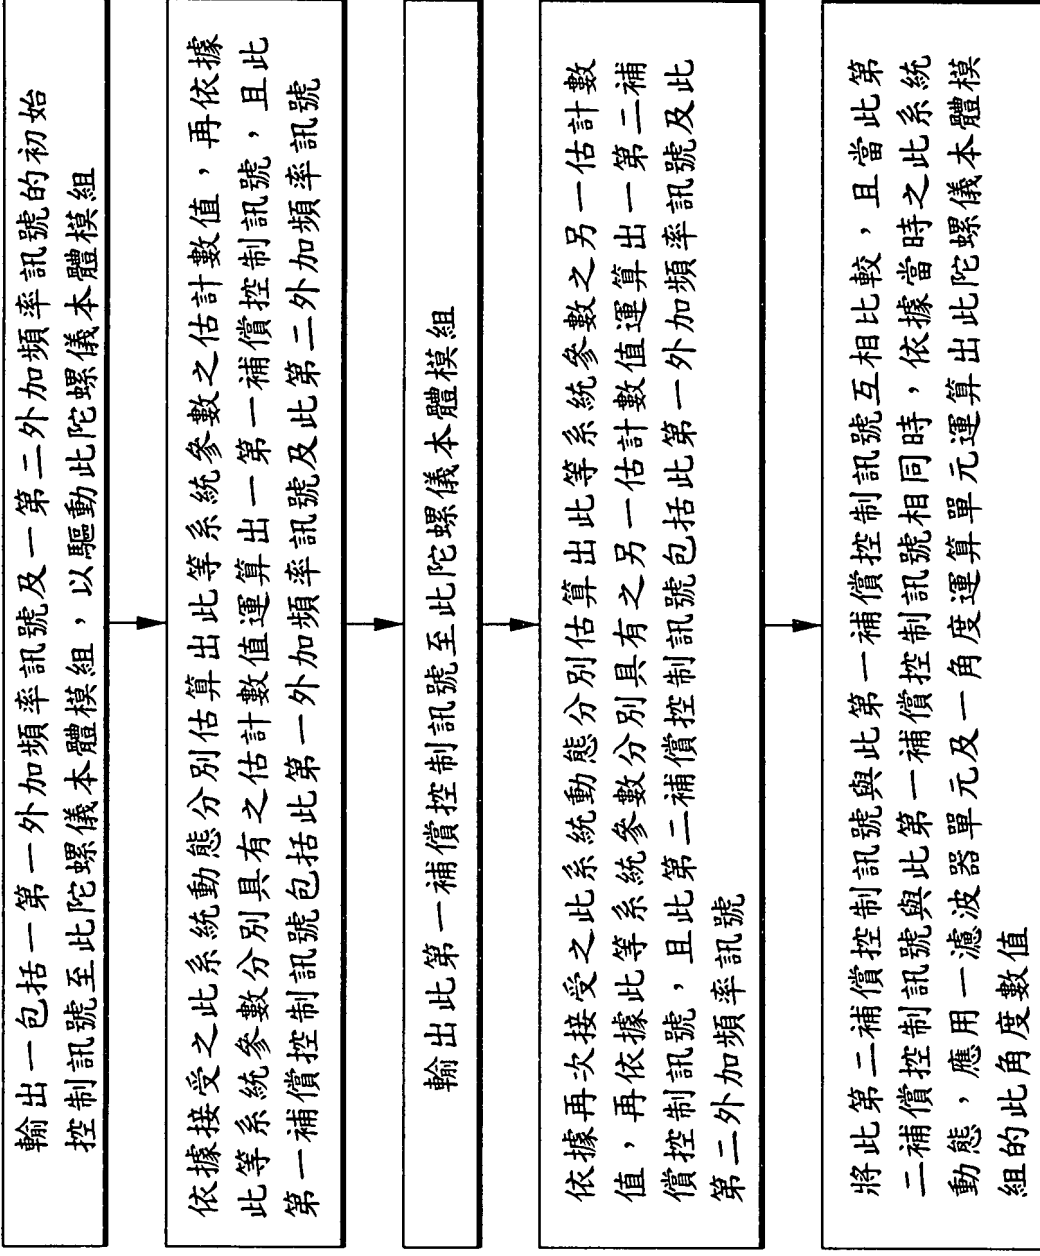 輸出一包括一第一外加頻率訊號及一第二外加頻率訊號的初始
控制訊號至此陀螺儀本體模組，以驅動此陀螺儀本體模組
依據接受之此系統動態分別估算出此等系統參數之估計數值，再依據
此等系統參數分別具有之估計數值運算出一第一補償控制訊號，且此
第一補償控制訊號包括此第一外加頻率訊號及此第二外加頻率訊號
輸出此第一補償控制訊號至此陀螺儀本體模組
依據再次接受之此系統動態分別估算出此等系統參數之另一估計數
值，再依據此等系統參數分別具有之另一估計數值運算出一第二補
償控制訊號，且此第二補償控制訊號包括此第一外加頻率訊號及此
第二外加頻率訊號
將此第二補償控制訊號與此第一補償控制訊號互相比較，且當此第
二補償控制訊號與此第一補償控制訊號相同時，依據當時之此系統
動態，應用一濾波器單元及一角度運算單元運算出此陀螺儀本體模
組的此角度數值